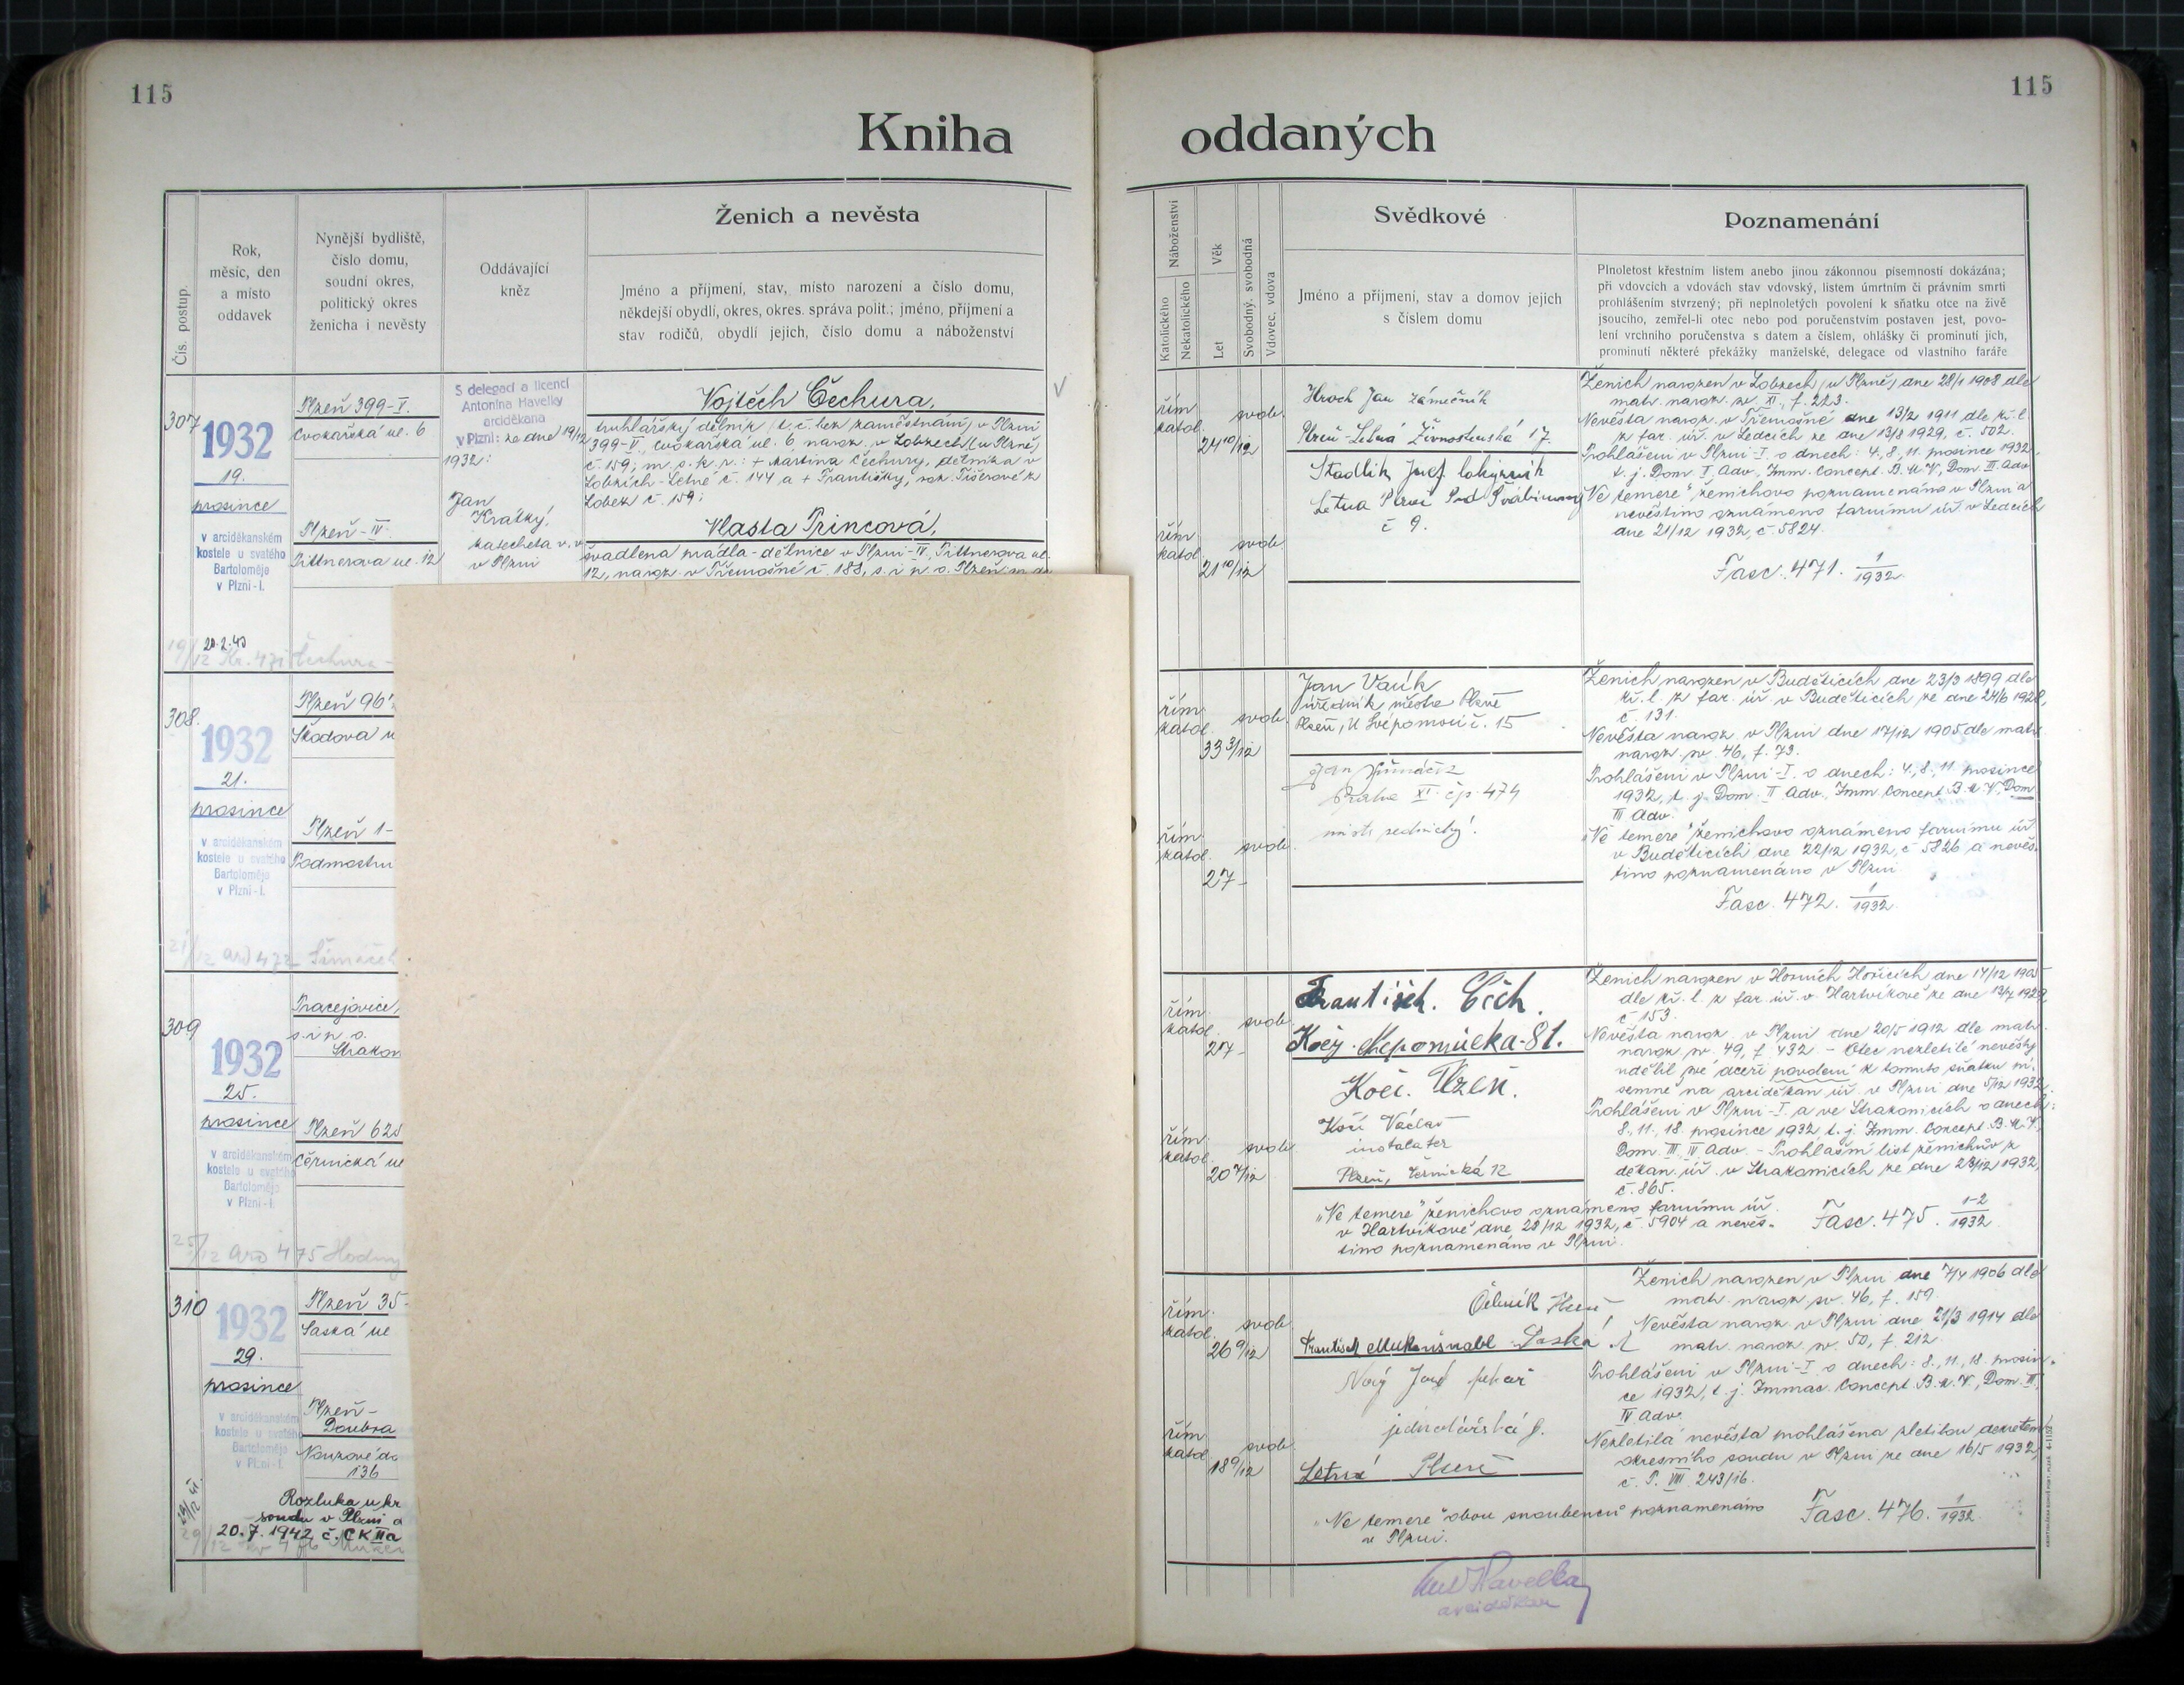 115
115
Kniha oddaných
Čís. postup.
Rok,
měsíc, den
a místo
oddavek
Nynější bydliště,
číslo domu,
soudní okres,
politický okres
ženicha i nevěsty
Oddávající
kněz
Ženich a nevěsta
Jméno a příjmení, stav, místo narození a číslo domu,
někdejší obydlí, okres, okres. správa polit.; jméno, příjmení a
stav rodičů, obydlí jejich, číslo domu a náboženství
Náboženství
Katolického
Nekatolického
Věk
Let
Svobodný, svobodná
Vdovec, vdova
Svědkové
Jméno a příjmení, stav a domov jejich
s číslem domu
Poznamenání
Plnoletost křestním listem anebo jinou zákonnou písemností dokázána;
při vdovcích a vdovách stav vdovský, listem úmrtním či právním smrti
prohlášením stvrzený; při neplnoletých povolení k sňatku otce na živě
jsoucího, zemřel-li otec nebo pod poručenstvím postaven jest, povo-
lení vrchního poručenstva s datem a číslem, ohlášky či prominutí jich,
prominutí některé překážky manželské, delegace od vlastního faráře
307
1932
19.
prosince
v arciděkanském
kostele u svatého
Bartoloměje
v Plzni-I.
Plzeň 399-V.
Cvokařská ul. 6
Plzeň-IV.
Tittnerova ul. 12
S delegací a licencí
Antonína Havelky
arciděkana
v Plzni: ze dne 19/12
1932:
Jan
Krátký,
katecheta v. v.
v Plzni
Vojtěch Čechura,
truhlářský dělník (t. č. bez zaměstnání) v Plzni
399-V, Cvokařská ul. 6 naroz. v Lobzech (u Plzně)
č. 159; m. s. k. p.: + Martina Čechury, dělníka v
Lobzích-Letné č. 144 a + Františky, roz. Tišerové z
Lobez č. 159;
Vlasta Princová,
švadlena prádla-dělnice v Plzni-IV, Tittnerova ul.
12, naroz. v Třemošné č. 188, s. i p. o. Plzeň
řím.
katol.
svob.
24 10/12
řím.
katol.
svob.
21 10/12
Hroch Jan zámečník
Plzeň Letná Živnostenská 17.
Stadlik Josef
Letna Plzeň Pod
č 9.
Ženich narozen v Lobzech (u Plzně) dne 28/1 1908 dle
matr. naroz. sv. XI, f. 223.
Nevěsta naroz. v Třemošné dne 13/2 1911 dle kř. l.
z far. úř. v Ledcích ze dne 13/8 1929, č. 502.
Prohlášeni v Plzni-I. o dnech: 4., 8., 11. prosince 1932,
t. j. Dom. II Adv., Imm. Concept. B. M. V., Dom. III. Adv.
„Ne temere" ženichovo poznamenáno v Plzni a
nevěstino oznámeno farnímu úř. v Ledcích
dne 21/12 1932, č. 5824.
Fasc. 471. 1/1932.
20.2.43
19/12 471 Čechura -
308.
1932
21.
prosince
v arciděkanském
kostele u svatého
Bartoloměje
v Plzni-I.
Plzeň 96
Škodova u
Plzeň 1-
Podmostní
21/12 472 Šimáček
řím.
katol.
svob.
33 3/12
řím.
katol.
svob.
27-
Jan Vaník
úředník města Plzně
Plzeň, U Svépomoci č. 15
Jan Šimáček
Praha XI. čp. 474
Ženich narozen v Buděticích dne 23/3 1899 dle
kř. l. z far. úř. v Buděticích ze dne 24/6 1928,
č. 131.
Nevěsta naroz. v Plzni dne 17/12 1905 dle matr.
naroz. sv. 46, f. 73.
Prohlášeni v Plzni-I. o dnech: 4., 8., 11. prosince
1932, t. j. Dom. II Adv., Imm. Concept. B. M. V., Dom
III Adv.
„Ne temere" ženichovo oznámeno farnímu úř.
v Buděticích dne 22/12 1932, č. 5826 a nevěs-
tino poznamenáno v Plzni.
Fasc. 472. 1/1932.
309
1932
25.
prosince
v arciděkanském
kostele u svatého
Bartoloměje
v Plzni-I.
Pracejovice,
s. i p. o.
Strakon
Plzeň 625
Černická ul
25/12 475 Hodiny
řím.
katol.
svob.
27-
řím.
katol.
svob.
20 7/12
František. Čech.
Kočí. Nepomucka-81.
Kočí. Plzeň.
Koči Václav
instalater
Plzeň, Černická 12
„Ne temere" ženichovo oznámeno farnímu úř.
v Hartvíkově dne 28/12 1932, č. 5904 a nevěs-
tino poznamenáno v Plzni.
Ženich narozen v Horních Hořicích dne 14/12 1905
dle kř. l. z far. úř. v Hartvíkově ze dne 13/7 1929,
č 153.
Nevěsta naroz. v Plzni dne 20/5 1912 dle matr.
naroz. sv. 49, f. 432. - Otec nezletilé nevěsty
udělil své dceři povolení k tomuto sňatku pí-
semně na arciděkan. úř. v Plzni dne 5/12 1932.
Prohlášeni v Plzni-I. a ve Strakonicích o dnech:
8., 11., 18. prosince 1932 t. j. Imm. Concept. B. M. V.,
Dom. III, IV Adv. - Prohlášní list ženichův z
děkan. úř. v Strakonicích ze dne 23/12 1932,
č. 865.
Fasc. 475. 1-2/1932
310
1932
29.
prosince
v arciděkanském
kostele u svatého
Bartoloměje
v Plzni-I.
Plzeň 35-
Saská ul
Plzeň-
Doubra
Nouzové do
136
Rozluka u kr
soudu v Plzni
20.7.1942 č. CK IIa
řím.
katol.
svob.
26 9/12
řím.
katol.
svob.
18 9/12
Čelník Plzeň
František Mukenšnabl Saska
Nový Josef pekař
Letná Plzeň
„Ne temere" obou snoubenců poznamenáno
v Plzni.
Ženich narozen v Plzni dne 7/4 1906 dle
matr. naroz sv. 46, f. 159.
Nevěsta naroz. v Plzni dne 21/3 1914 dle
matr. naroz. sv. 50, f. 212.
Prohlášeni v Plzni-I o dnech: 8., 11., 18. prosin-
ce 1932, t. j. Immac. Concept. B. M. V., Dom. III,
IV Adv.
Nezletilá nevěsta prohlášena zletilou dekretem
okresního soudu v Plzni ze dne 16/5 1932,
č. P. VIII 243/16.
Fasc. 476. 1/1932.
Ant. Havelka
arciděkan